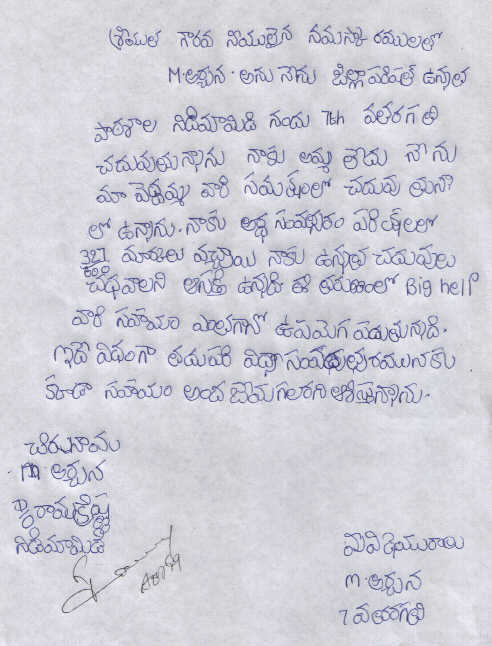 శ్రీయుత గౌరవ నీయులైన నమస్కారములతో
M. అర్చన. అను నేను జిల్లా పరిషత్ ఉన్నత
పాఠశాల నిడిమామిడి నందు 7th వతరగతి
చదువుతున్నాను నాకు అమ్మ లేదు నేను
మా పెద్దమ్మ వారి సమక్షంలో చదువు తున్నా
లో ఉన్నాను. నాకు అర్ధ సంవత్సరం పరీక్షలలో
327 మార్కులు వచ్చాయి నాకు ఉన్నత చదువులు
చదవాలని ఆసక్తి ఉన్నది ఈ తరుణంలో Big help
వారి సహాయం ఎంతగానో ఉపయోగ పడుతున్నది.
ఇదే విధంగా తదుపరి విద్యా సంవత్సరమునకు
కూడా సహాయం అంద జేయగలరని ఆశిస్తున్నాను.
చిరునామ
m. అర్చన
D/o రామకృష్ణ
నిడిమామిడి
మీ విధేయురాలు
m. అర్చన
7 వతరగతి